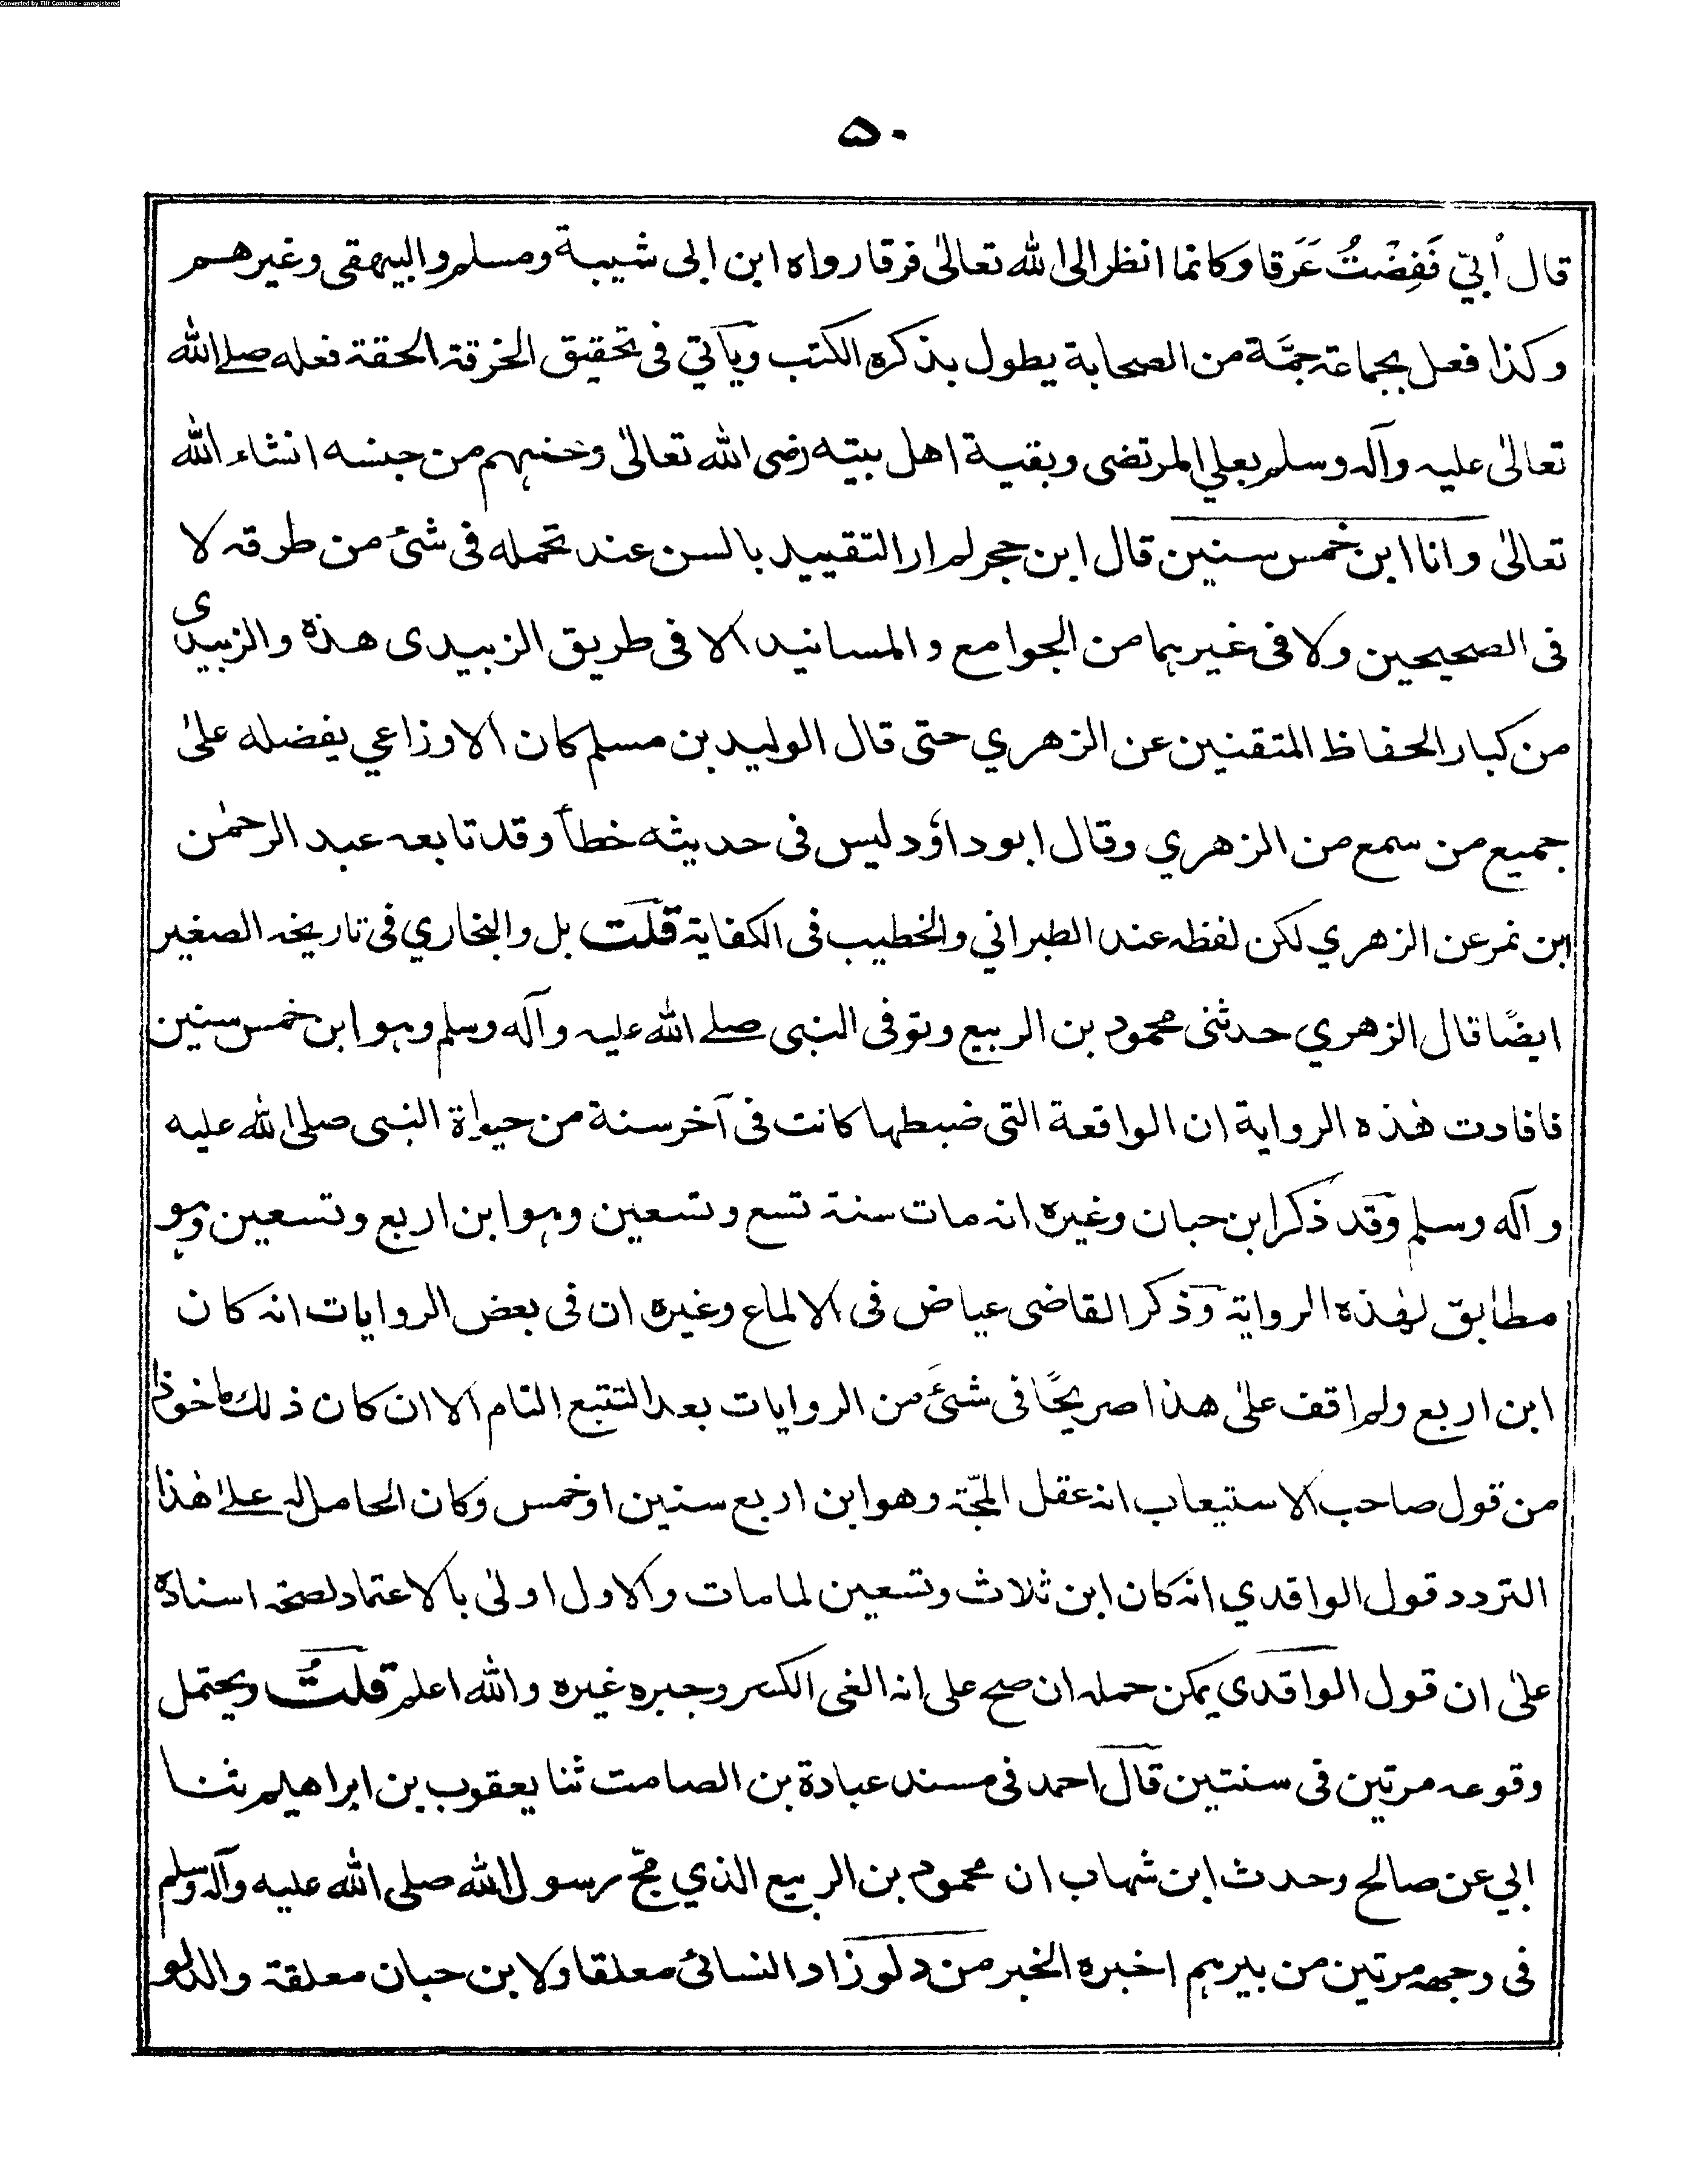 Converted by Tiff Combine - unregistered
۵۰
قال اُبيّ فَفِضْتُ عَرَقا وكانما انظر الى الله تعالىٰ فرقا رواه ابن ابى شيبة ومسلم والبيهقى وغيرهم
وكذا فعل بجماعة جمَّة من الصحابة يطول بذكره الكتب ويأتي فى تحقيق الخرقة الحقة فعله صلے الله
تعالىٰ عليه وآله وسلم بعلي المرتضى وبقية اهل بيته رضى الله تعالىٰ وعنهم من جنسه انشاء الله
تعالىٰ وانا ابن خمس سنين قال ابن حجر لم ار التقييد بالسن عند تحمله فى شئ من طرقه لا
فى الصحيحين ولا فى غيرهما من الجوامع والمسانيد الا فى طريق الزبيدى هذه والزبيدى
من كبار الحفاظ المتقنين عن الزهري حتى قال الوليد بن مسلم كان الاوزاعي يفضله علىٰ
جميع من سمع من الزهري وقال ابو داؤد ليس فى حديثه خطأ وقد تابعه عبد الرحمٰن
ابن نمر عن الزهري لكن لفظه عند الطبراني والخطيب فى الكفاية قلت بل والبخاري فى تاريخه الصغير
ايضًا قال الزهري حدثنى محمود بن الربيع وتوفى النبى صلے الله عليه وآله وسلم وهو ابن خمس سنين
فافادت هٰذه الرواية ان الواقعة التى ضبطها كانت فى آخر سنة من حيواة النبى صلى الله عليه
وآله وسلم وقد ذكر ابن حبان وغيره انه مات سنة تسع وتسعين وهو ابن اربع وتسعين وهو
مطابق لهٰذه الرواية وذكر القاضى عياض فى الالماع وغيره ان فى بعض الروايات انه كان
ابن اربع ولم اقف علىٰ هذا صريحًا فى شئ من الروايات بعد التتبع التام الا ان كان ذلك ماخوذا
من قول صاحب الاستيعاب انه عقل المجّة وهو ابن اربع سنين او خمس وكان الحامل له علىٰ هٰذا
التردد قول الواقدي انه كان ابن ثلاث وتسعين لما مات والاول اولىٰ بالاعتماد لصحة اسناده
علىٰ ان قول الواقدى يمكن حمله ان صح على انه الغى الكسر وجبره غيره والله اعلم قلتُ ويحتمل
وقوعه مرتين فى سنتين قال احمد فى مسند عبادة بن الصامت ثنا يعقوب بن ابراهيم ثنا
ابي عن صالح وحدث ابن شهاب ان محمود بن الربيع الذي مجّ رسول الله صلى الله عليه وآله وسلم
فى وجهه مرتين من بيرهم اخبره الخبر من دلو زاد النسائ معلقا ولابن حبان معلقة والدلو